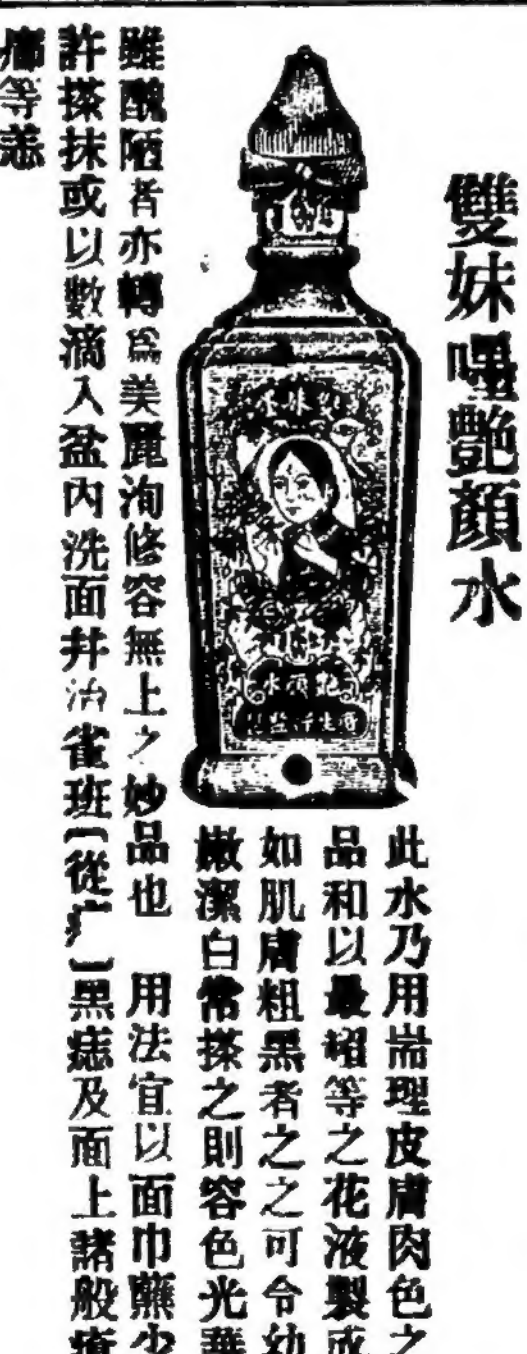 雙妹嘜艷顏水
此水乃用耑理皮膚肉色之
品和以最超等之花液製成
如肌膚粗黑者之之可令幼
嫩潔白常搽之則容色光華
雖醜陋者亦轉為美麗洵修容無上之妙品也 用法宜以面巾蘸少
許搽抹或以數滴入盆內洗面幷治雀班〔從疒〕黑痣及面上諸般瘡
等恙
雙妹嘜
艷顏水